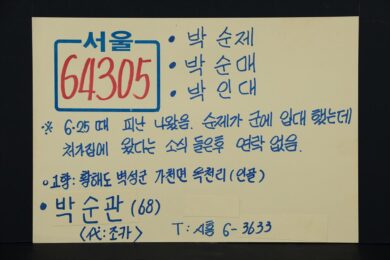 서울
64305
• 박 순제
• 박 순매
• 박 인대
※ 6·25 때 피난 나왔음. 순제가 군에 입대 했는데
처가집에 왔다는 소식 들은후 연락 없음.
◦고향: 황해도 벽성군 가천면 옥천리
• 박순관 (68)
조카>
T: 시흥 6-3633